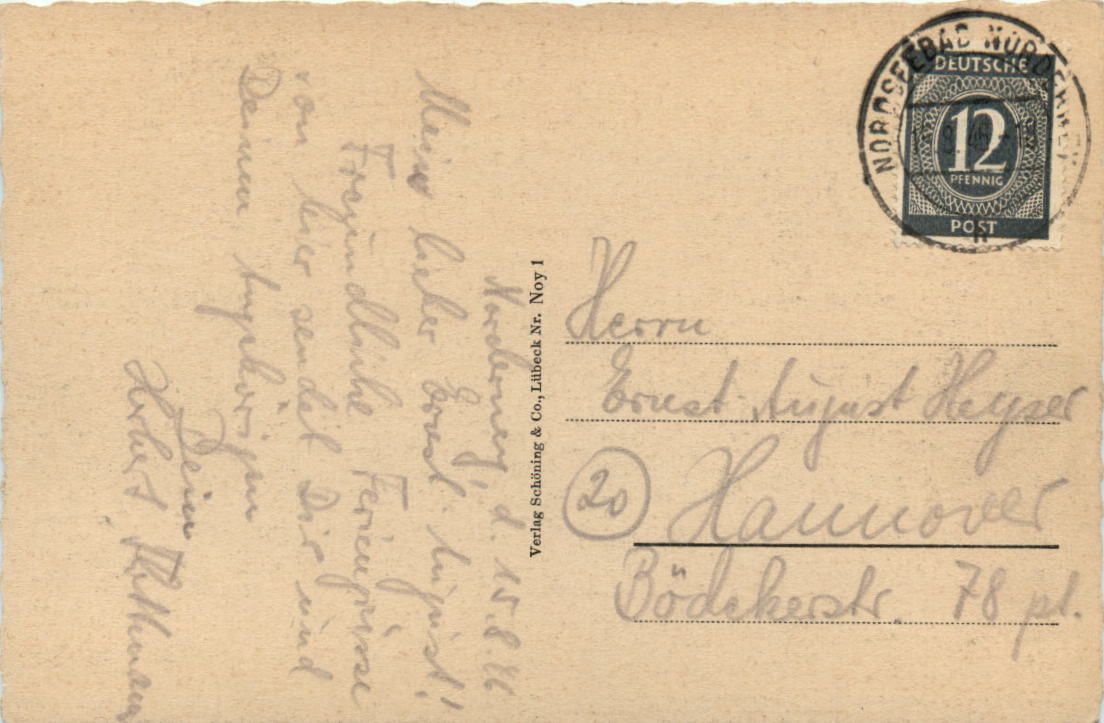 Norderney, d. 15.8.46
Mein lieber Ernst-August!
Freundliche Feriengrüsse
von hier sendet Dir und
Deinen Angehörigen
Dein
Herbert
Verlag Schöning & Co., Lübeck Nr. Noy 1
NORDSEEBAD NORDERNEY
DEUTSCHE
12
PFENNIG
POST
Herrn
Ernst-August Heyser
20 Hannover
Bödekerstr. 78 pt.